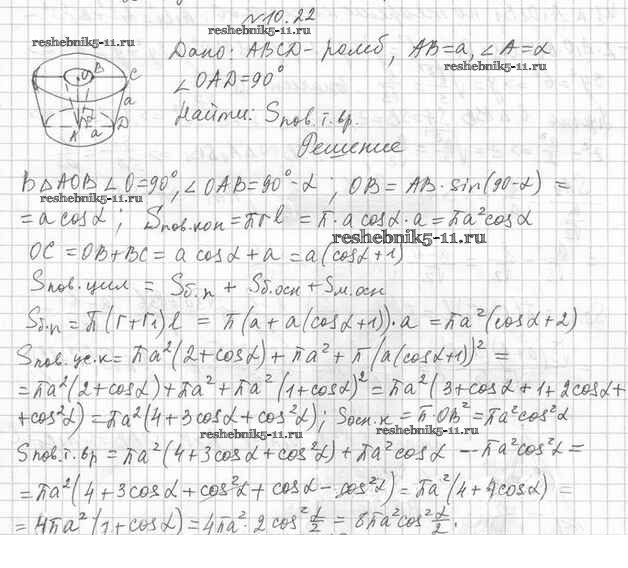 №10.22
reshebnik5-11.ru
reshebnik5-11.ru
Дано: ABCD - ромб, AB=a, ∠A=α
∠OAD=90°
Найти: Sпов.т.вр.
Решение
O B C a A a D
В △AOB ∠O=90°, ∠OAB=90°-α ; OB = AB·sin(90-α) =
= a cosα ; Sпов.кон = πrl = π·a cosα·a = πa²cosα
reshebnik5-11.ru
OC = OB+BC = a cosα + a = a(cosα+1)
Sпов.цил = Sб.п + Sб.осн + Sм.осн
Sб.п = π(r+r₁)l = π(a + a(cosα+1))·a = πa²(cosα+2)
Sпов.ус.к = πa²(2+cosα) + πa² + π(a(cosα+1))² =
= πa²(2+cosα) + πa² + πa²(1+cosα)² = πa²(3+cosα+1+2cosα+
+cos²α) = πa²(4+3cosα+cos²α) ; Sосн.к = π·OB² = πa²cos²α
reshebnik5-11.ru
reshebnik5-11.ru
Sпов.т.вр = πa²(4+3cosα+cos²α) + πa²cosα - πa²cos²α =
= πa²(4+3cosα+cos²α+cosα-cos²α) = πa²(4+4cosα) =
= 4πa²(1+cosα) = 4πa²·2cos²α/2 = 8πa²cos²α/2.